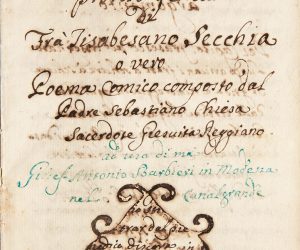 di
Frà Tisabesano Secchia
o vero
Poema Comico composto dal
Padre Sebastiano Chiesa
Sacerdote Giesuita Reggiano
ad uso di me
Giuse. Antonio Barbieri in Modena
nel Canalgrande